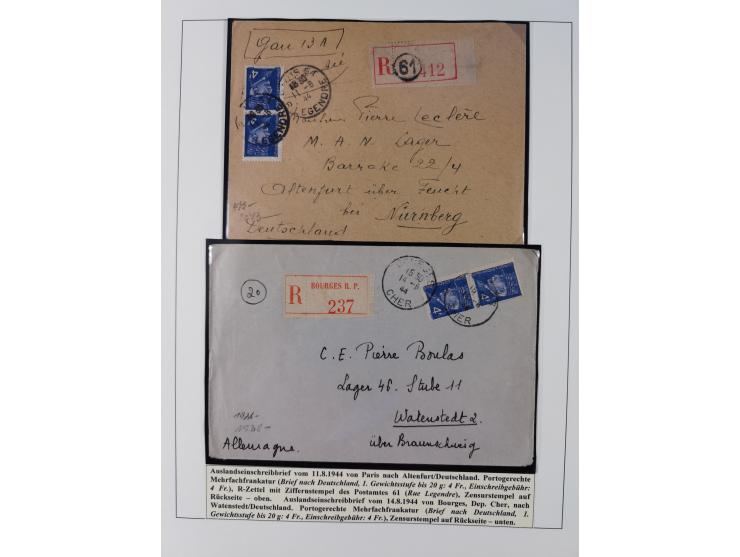 Gau 13A
R 61 412
PARIS 61
11 - 8
44
R. LEGENDRE
4
Pierre Leclère
M. A. N. Lager
Baracke 22/4
Altenfurt über Feucht
bei Nürnberg
Deutschland
20
BOURGES R. P.
R 237
15 30
14 - 8
44
CHER
4 4
CHER
C. E. Pierre Boulas
Lager 46. Stube 11
Watenstedt 2.
über Braunschweig
Allemagne
Auslandseinschreibbrief vom 11.8.1944 von Paris nach Altenfurt/Deutschland. Portogerechte
Mehrfachfrankatur (Brief nach Deutschland, 1. Gewichtsstufe bis 20 g: 4 Fr., Einschreibgebühr:
4 Fr.), R-Zettel mit Ziffernstempel des Postamtes 61 (Rue Legendre), Zensurstempel auf
Rückseite – oben. Auslandseinschreibbrief vom 14.8.1944 von Bourges, Dep. Cher, nach
Watenstedt/Deutschland. Portogerechte Mehrfachfrankatur (Brief nach Deutschland, 1.
Gewichtsstufe bis 20 g: 4 Fr., Einschreibgebühr: 4 Fr.), Zensurstempel auf Rückseite – unten.